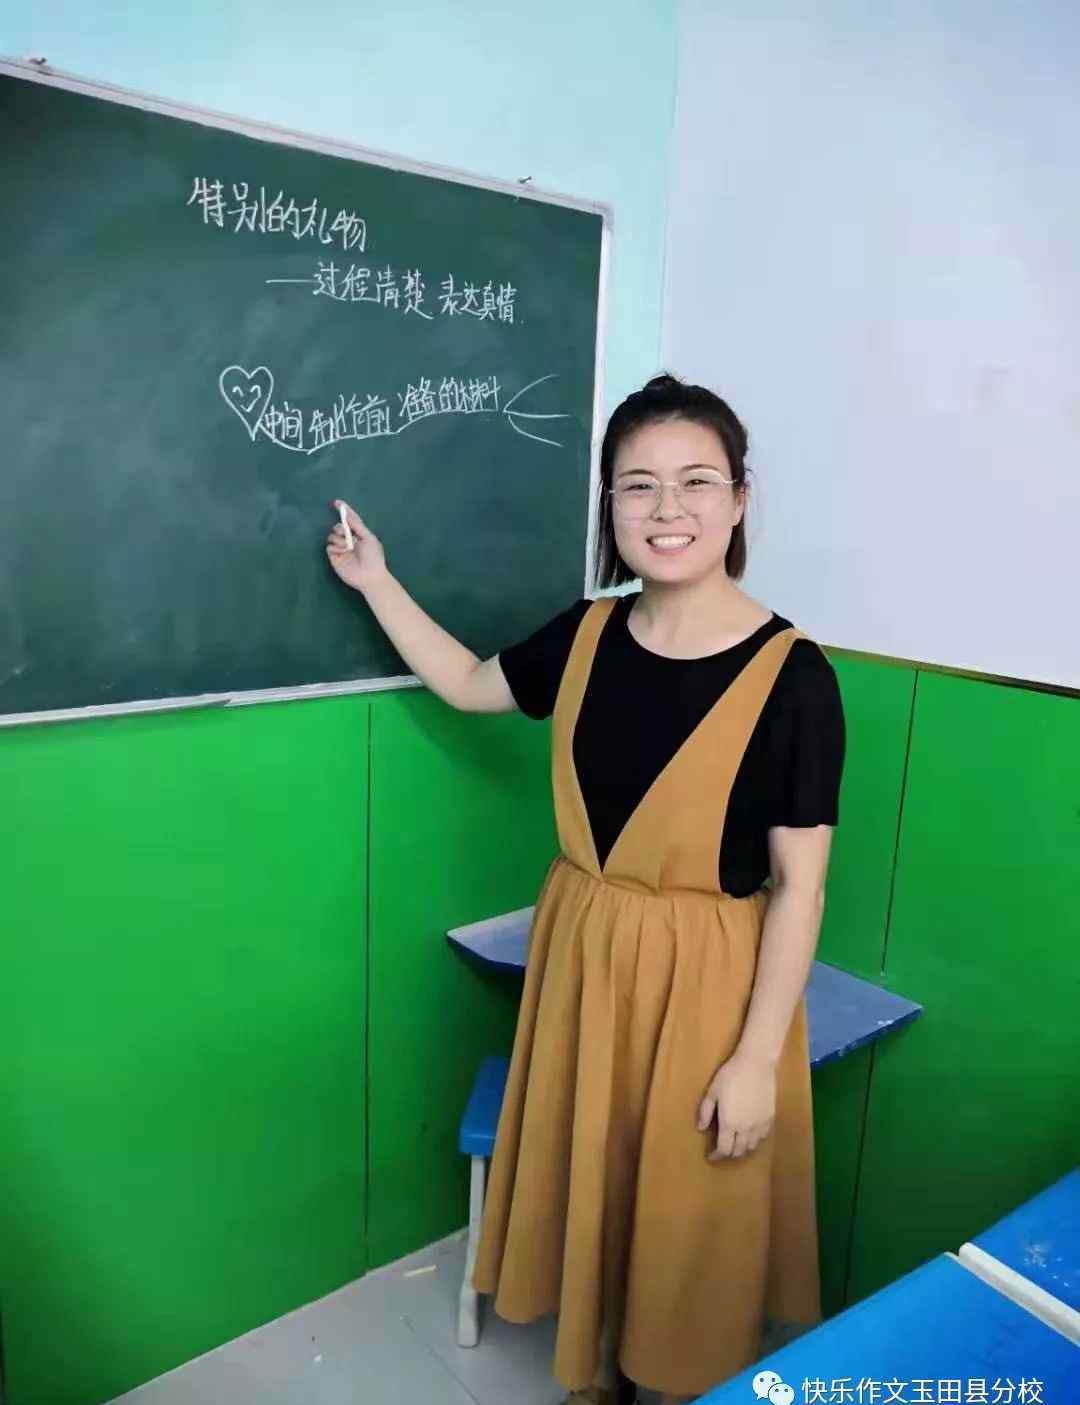 特别的礼物
——过程清楚 表达真情.
中间 制作前 准备的材料
快乐作文玉田县分校